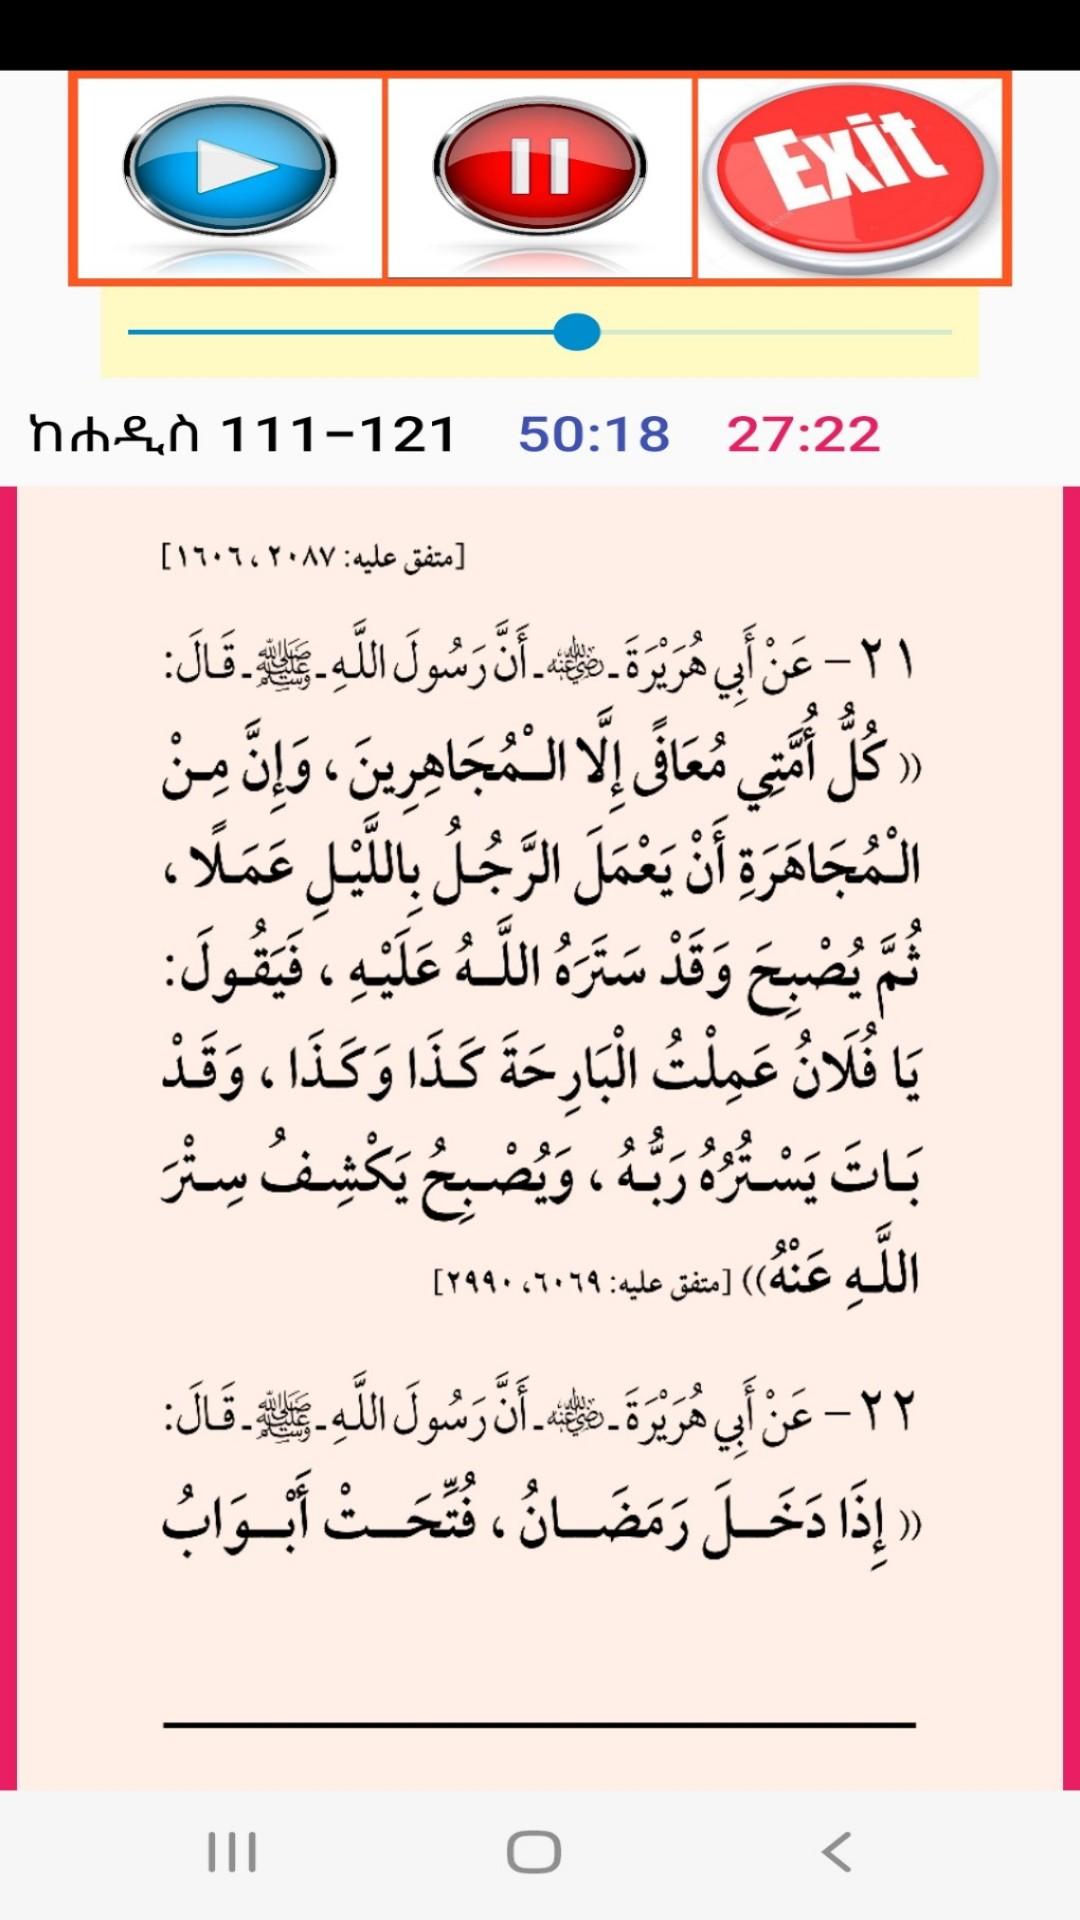 Exit
ከሐዲስ 111-121 50:18 27:22
[متفق عليه: ٢٠٨٧ ، ١٦٠٦]
٢١ – عَنْ أَبِي هُرَيْرَةَ ـ رضي الله عنه ـ أَنَّ رَسُولَ اللَّهِ ـ ﷺ ـ قَالَ:
(( كُلُّ أُمَّتِي مُعَافًى إِلَّا الْمُجَاهِرِينَ ، وَإِنَّ مِنْ
الْمُجَاهَرَةِ أَنْ يَعْمَلَ الرَّجُلُ بِاللَّيْلِ عَمَلًا ،
ثُمَّ يُصْبِحَ وَقَدْ سَتَرَهُ اللَّهُ عَلَيْهِ ، فَيَقُولَ:
يَا فُلَانُ عَمِلْتُ الْبَارِحَةَ كَذَا وَكَذَا ، وَقَدْ
بَاتَ يَسْتُرُهُ رَبُّهُ ، وَيُصْبِحُ يَكْشِفُ سِتْرَ
اللَّهِ عَنْهُ)) [متفق عليه: ٦٠٦٩، ٢٩٩٠]
٢٢ – عَنْ أَبِي هُرَيْرَةَ ـ رضي الله عنه ـ أَنَّ رَسُولَ اللَّهِ ـ ﷺ ـ قَالَ:
(( إِذَا دَخَلَ رَمَضَانُ ، فُتِّحَتْ أَبْوَابُ